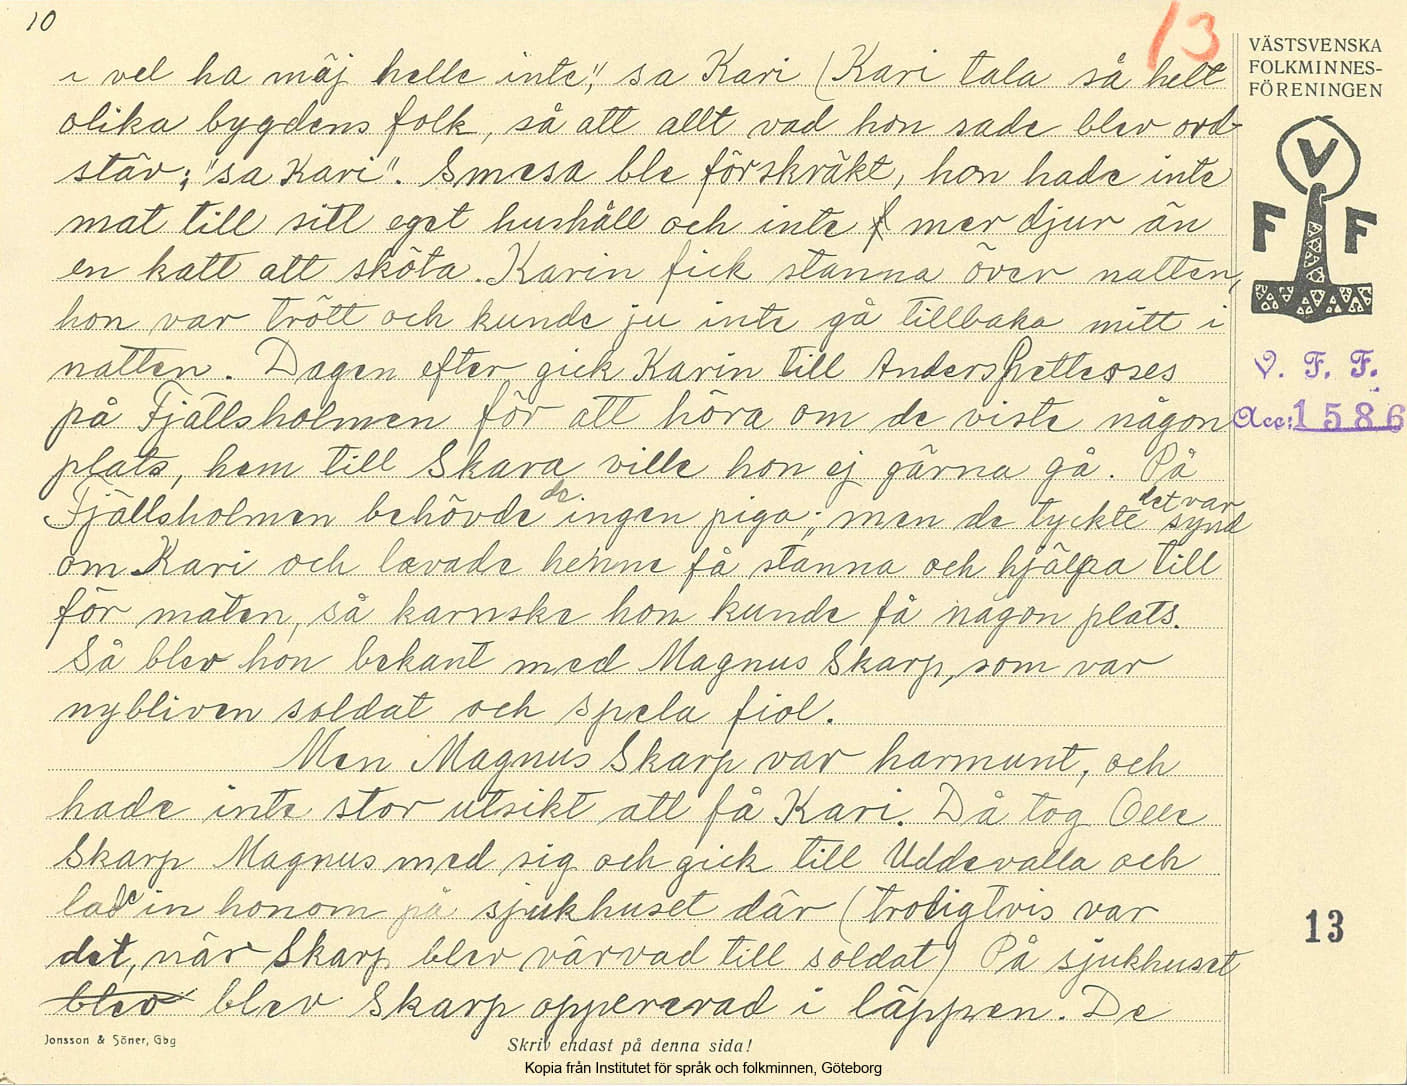 10
13
VÄSTSVENSKA
FOLKMINNES-
FÖRENINGEN
i vel ha mäj helle inte", sa Kari (Kari tala så helt
olika bygdens folk, så att allt vad hon sade blev ord-
stäv; "sa Kari". Smesa ble förskräkt, hon hade inte
mat till sitt eget hushåll och inte mer djur än
en katt att sköta. Karin fick stanna över natten,
hon var trött och kunde ju inte gå tillbaka mitt i
natten. Dagen efter gick Karin till Anders Petterses
på Fjällsholmen för att höra om de viste någon
plats, hem till Skara ville hon ej gärna gå. På
Fjällsholmen behövde de ingen piga; men de tyckte det var synd
om Kari och lovade henne få stanna och hjälpa till
för maten, så karnske hon kunde få någon plats.
Så blev hon bekant med Magnus Skarp, som var
nybliven soldat och spela fiol.
Men Magnus Skarp var harmunt, och
hade inte stor utsikt att få Kari. Då tog Olle
Skarp Magnus med sig och gick till Uddevalla och
lade in honom på sjukhuset där (troligtvis var
det, när Skarp blev värvad till soldat) På sjukhuset
blev blev Skarp oppererad i läppen. De
V
F F
V. F. F.
Acc: 1586
13
Jonsson & Söner, Gbg
Skriv endast på denna sida!
Kopia från Institutet för språk och folkminnen, Göteborg